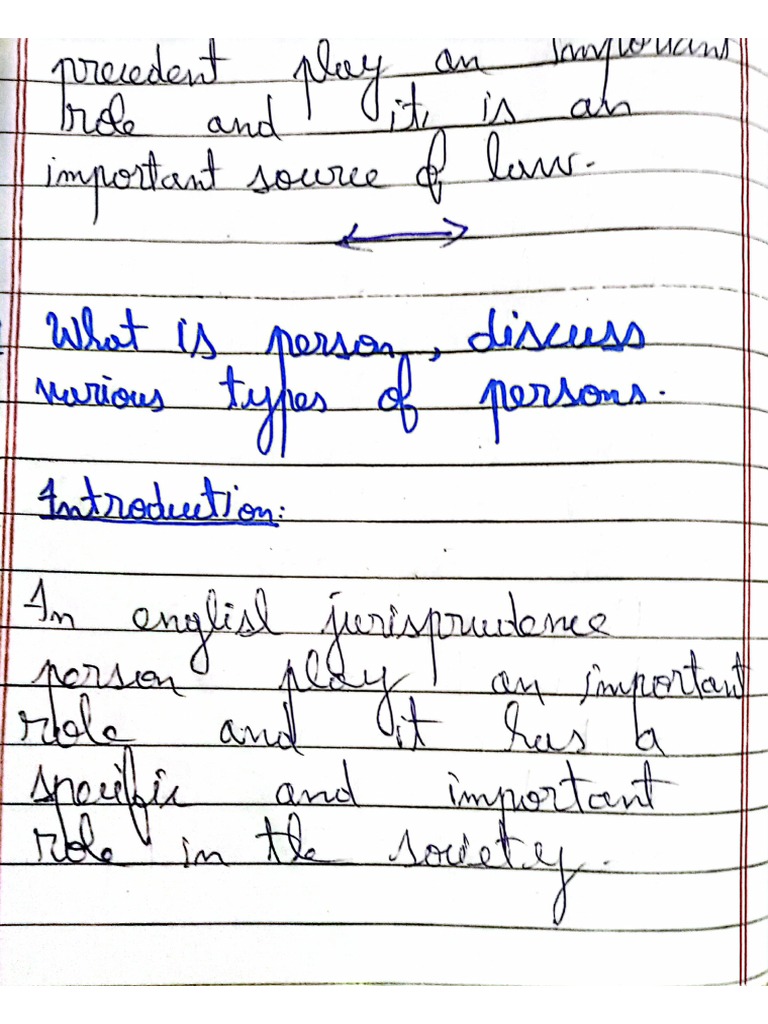 precedent play an important
role and it, is an
important source of law.
What is person, discuss
various types of persons.
Introduction:
In english jurisprudence
person play an important
role and it has a
specific and important
role in the society.